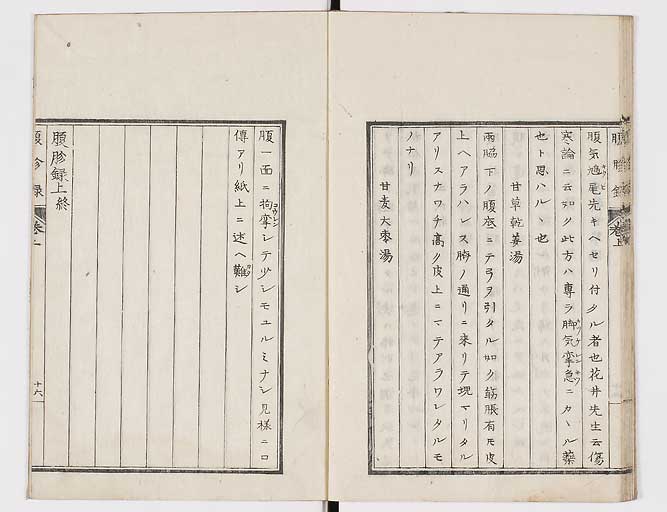 腹気鳩尾先キヘセリ付タル者也花井先生云傷
寒論ニ云如ク此方ハ専ラ脚気攣急ニカヽル薬
也ト思ハルヽ也
甘草乾姜湯
両脇下ノ腹底ニテ弓ヲ引タル如ク筋脹有モ皮
上ヘアラハレス胸ノ通リニ来リテ塊マリタル
アリスナワチ高ク皮上ニマテアラワレタルモ
ノナリ
甘麦大棗湯
腹一面ニ拘攣シテ少シモユルミナシ見様ニロ
傳アリ紙上ニ述ヘ難シ
腹胗録上終
腹胗録
巻上
十六